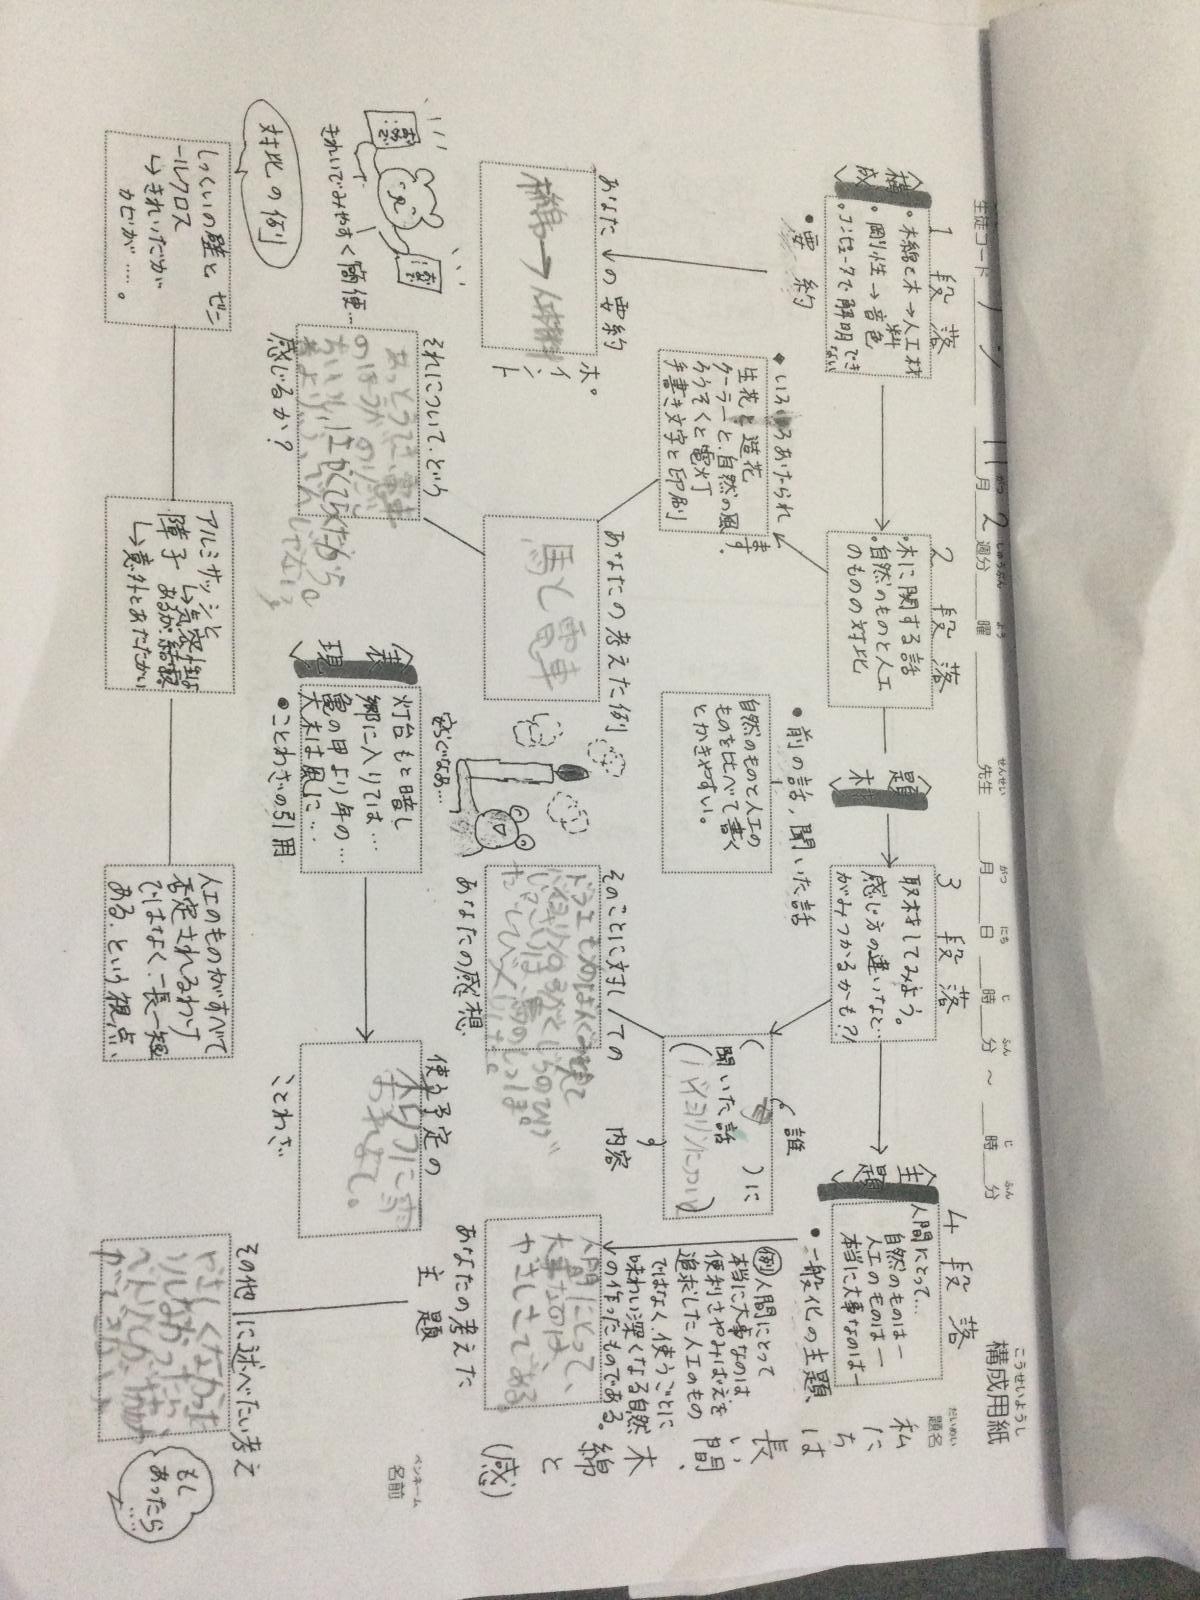 構成用紙
こうせいようし
生徒コード
11月2週分
がつ しゅうぶん
曜
よう
先生
せんせい
月 日 時 分 ~ 時 分
がつ にち じ ふん じ ふん
題名
だいめい
私たちは
長い間、
木綿と
(感)
ペンネーム
名前
1段落
構成
・木綿と木→人工材料
・剛性→音色
・コンピュータで解明できない
・要約
あなたの要約
木綿→人工材料
ポイント
2段落
・木に関する話
・自然のものと人工
のものの対比
・いろいろあげられ
ます。
生花と造花
クーラーと自然の風
ろうそくと電灯
手書き文字と印刷
あなたの考えた例
馬と電車
それについて、どう
感じるか?
きれいでみやすく簡便…
対比の例
しっくいの壁とビニ
ールクロス
↳きれいだが
カビが……。
アルミサッシと
障子 ↳気密性は
あるが結露
↳意外とあたたかい
人工のものがすべて
否定されるわけ
ではなく、一長一短
ある、という視点
題材
3段落
取材してみよう。
感じ方の違いなど…
がみつかるかも?!
・前の話、聞いた話
自然のものと人工の
ものを比べて書く
とかきやすい。
( )に
聞いた話
誰
内容
そのことに対しての
あなたの感想
安らぐなあ…
表現
灯台もと暗し
郷に入りては…
亀の甲より年の…
大木は風に…
・ことわざの引用
使う予定の
ことわざ
主題
4段落
人間にとって…
自然のものは—
人工のものは—
本当に大事なのは—
・一般化の主題
例 人間にとって
本当に大事なのは
便利さやみばえを
追求した人工のもの
ではなく、使うごとに
味わい深くなる自然
の作ったものである。
あなたの考えた
主題
人間にとって、
大事なのは、
やさしさである。
その他に述べたい考え
もし
あったら
……